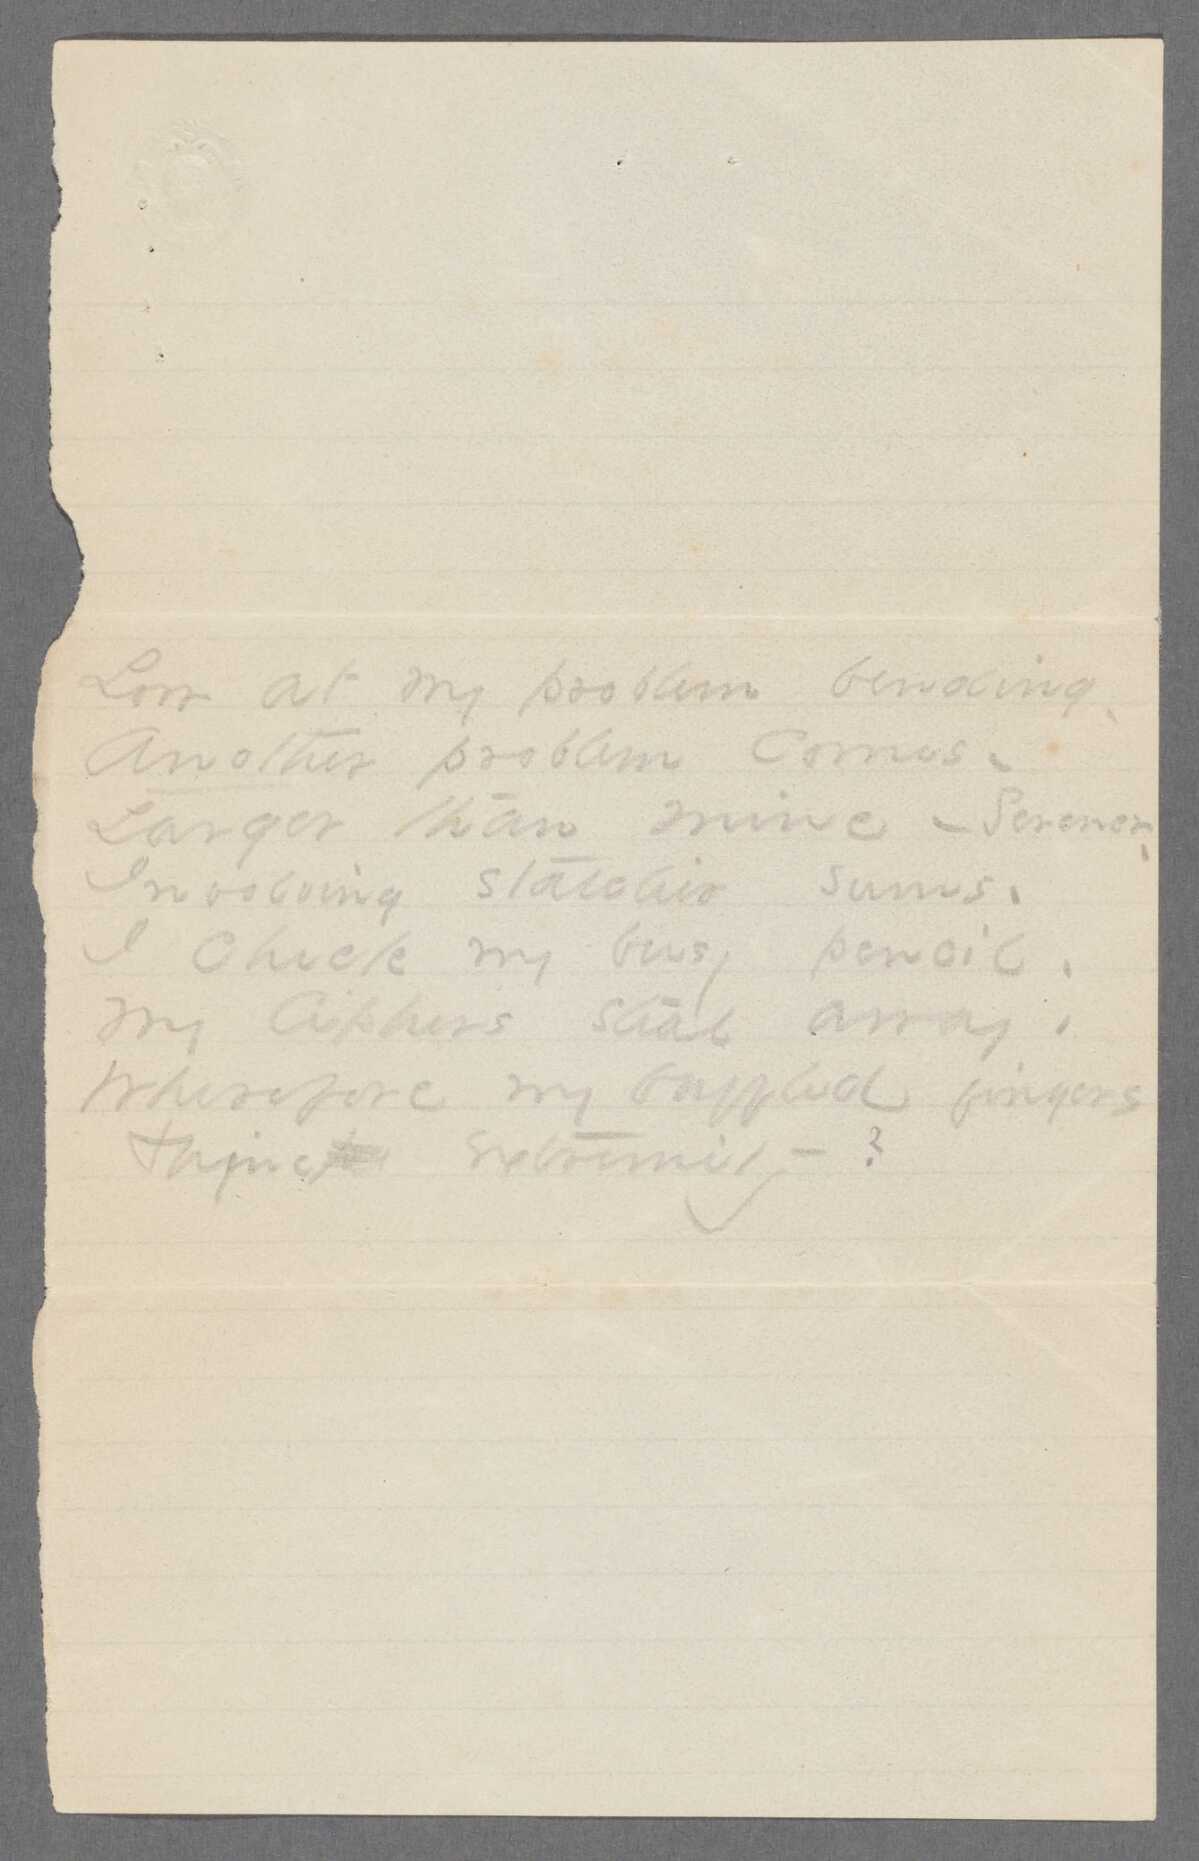 Low at my problem bending,
Another problem Comes -
Larger than mine - Serener,
Involving statelier sums.
I Check my busy pencil,
My Ciphers steal away,
Wherefore my baffled fingers
thine Extremity - ?